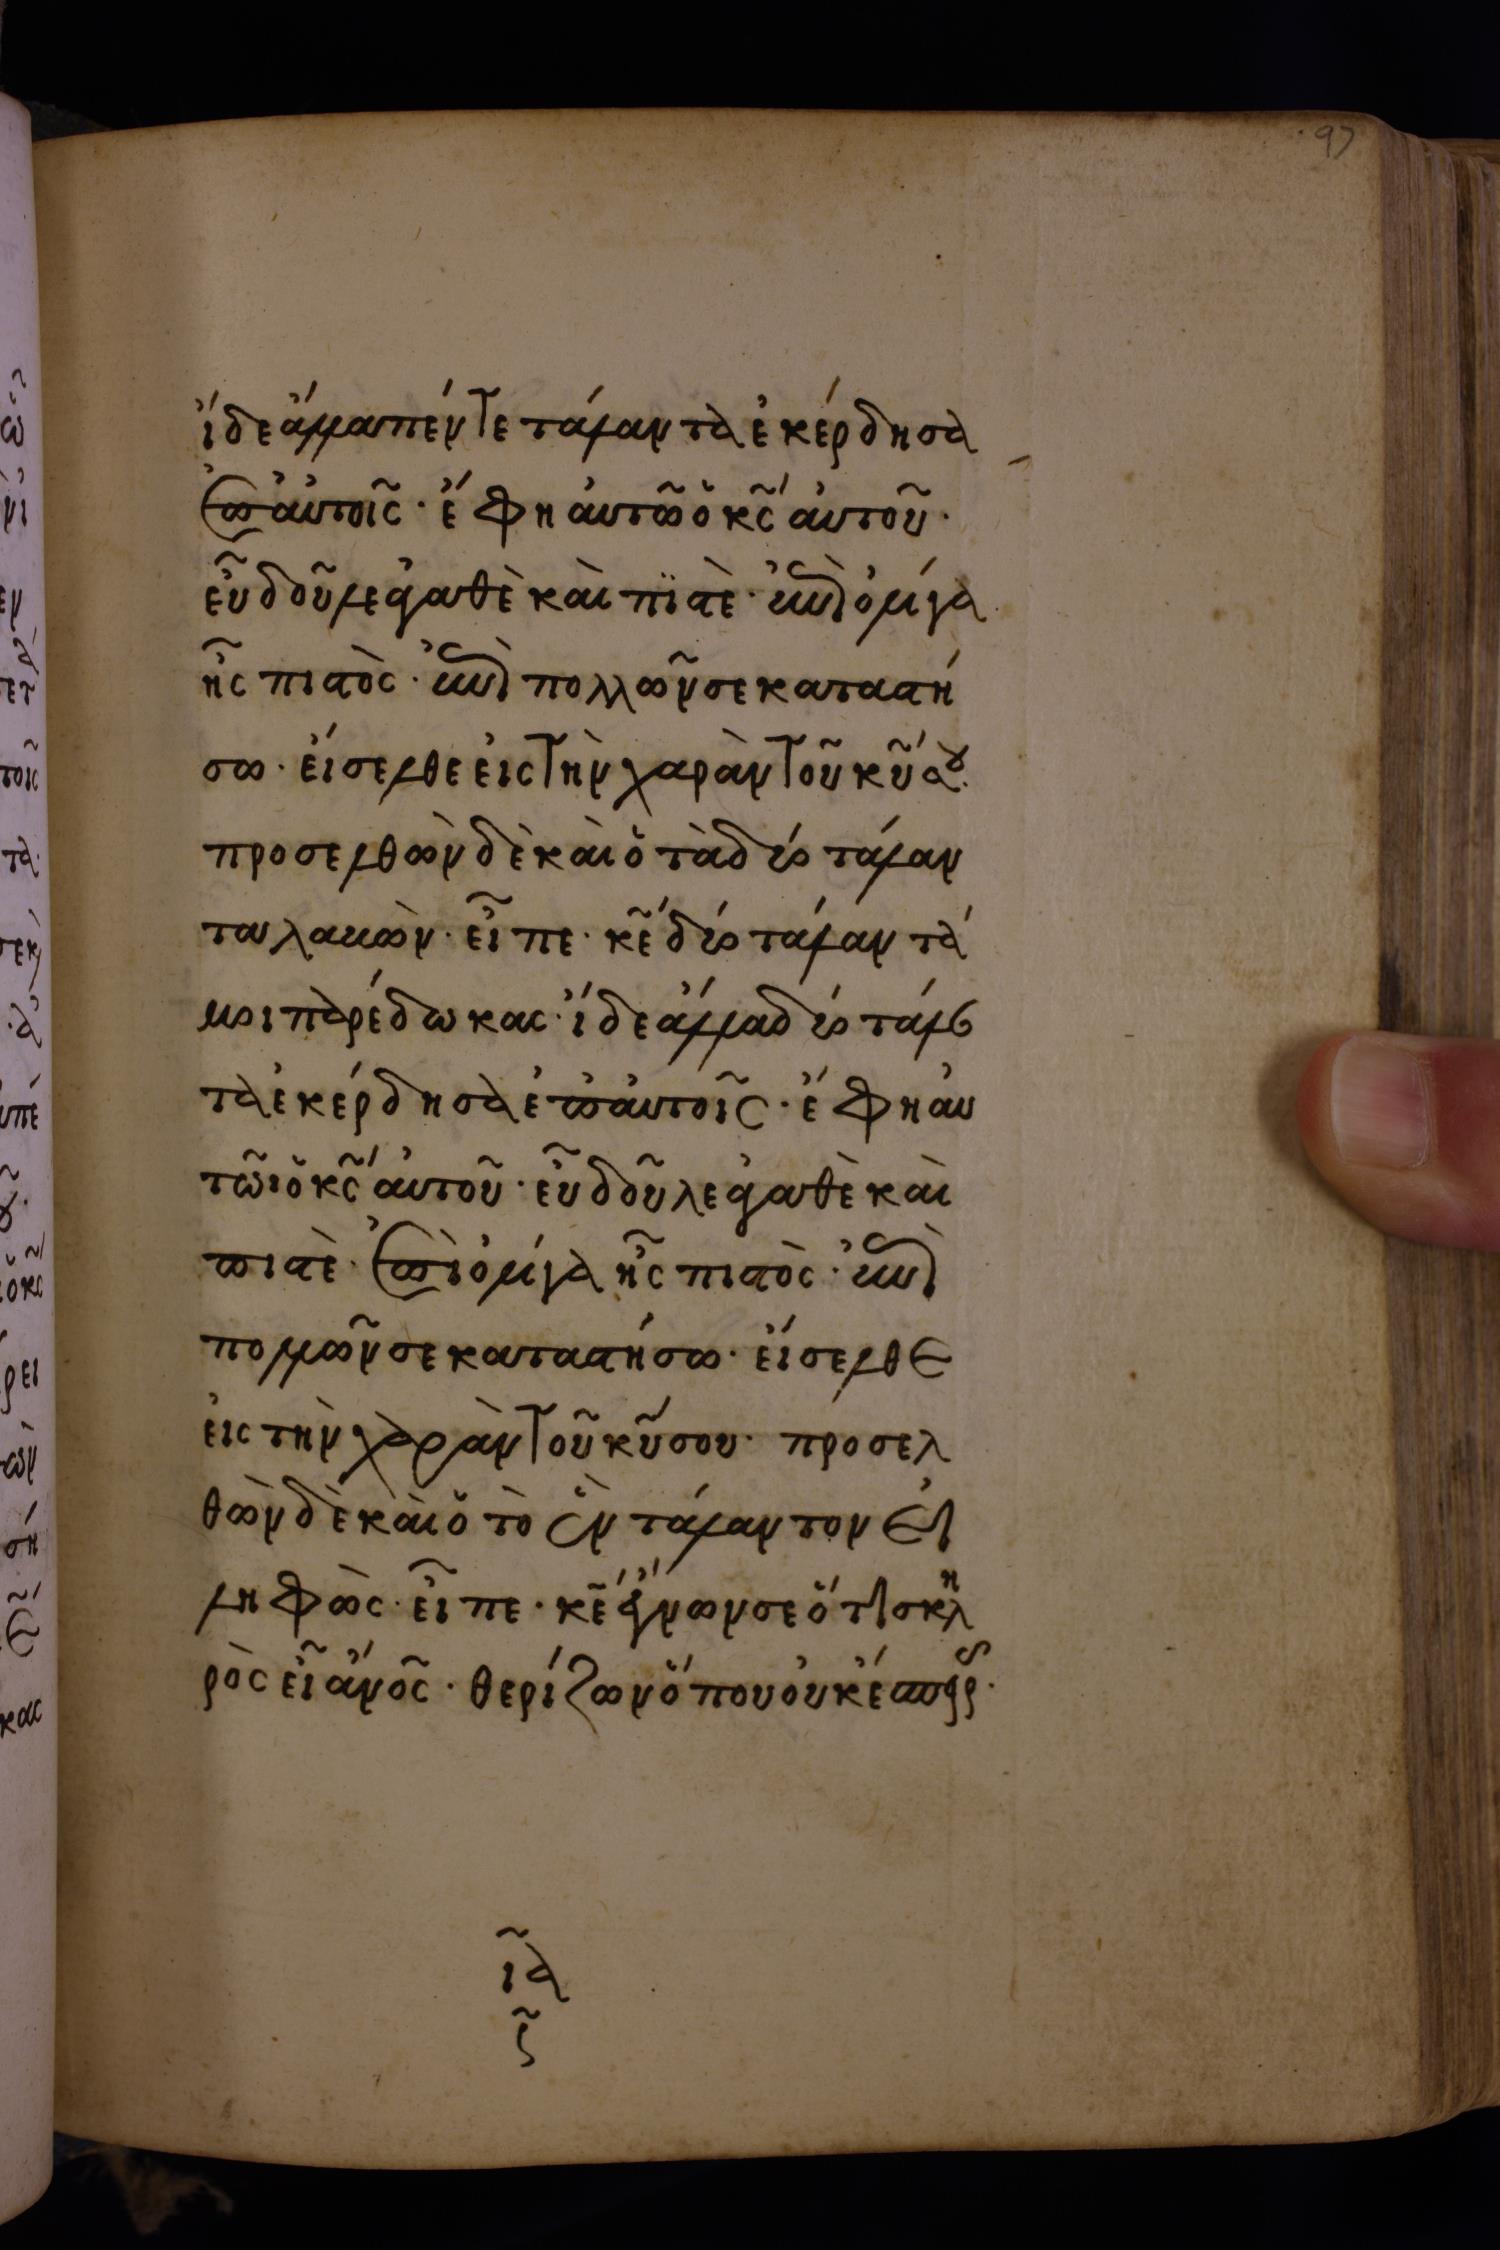 97
ἴδε ἄλλα πέντε τάλαντα ἐκέρδησα
ἐπ' αὐτοῖς· ἔφη αὐτῶ ὁ κ̅ς̅ αὐτοῦ·
εὖ δοῦλε ἀγαθὲ καὶ πιστὲ· ἐπὶ ὀλίγα
ἦς πιστὸς· ἐπὶ πολλῶν σε καταστή
σω· εἴσελθε εἰς τὴν χαρὰν τοῦ κ̅υ̅ σου·
προσελθὼν δὲ καὶ ὁ τὰ δύο τάλαν
τα λαβὼν· εἶπε· κ̅ε̅ δύο τάλαντά
μοι παρέδωκας· ἴδε ἄλλα δύο τάλαν
τα ἐκέρδησα ἐπ' αὐτοῖς· ἔφη αὐ
τῶι ὁ κ̅ς̅ αὐτοῦ· εὖ δοῦλε ἀγαθὲ καὶ
πιστὲ· ἐπὶ ὀλίγα ἦς πιστὸς· ἐπὶ
πολλῶν σε καταστήσω· εἴσελθε
εἰς τὴν χαρὰν τοῦ κ̅υ̅ σου· προσελ
θὼν δὲ καὶ ὁ τὸ ἓν τάλαντον εἰ
ληφὼς· εἶπε· κ̅ε̅ ἔγνων σε ὅτι σκλη
ρὸς εἶ ἄν̅ο̅ς̅· θερίζων ὅπου οὐκ ἔσπειρας·
ια
ς